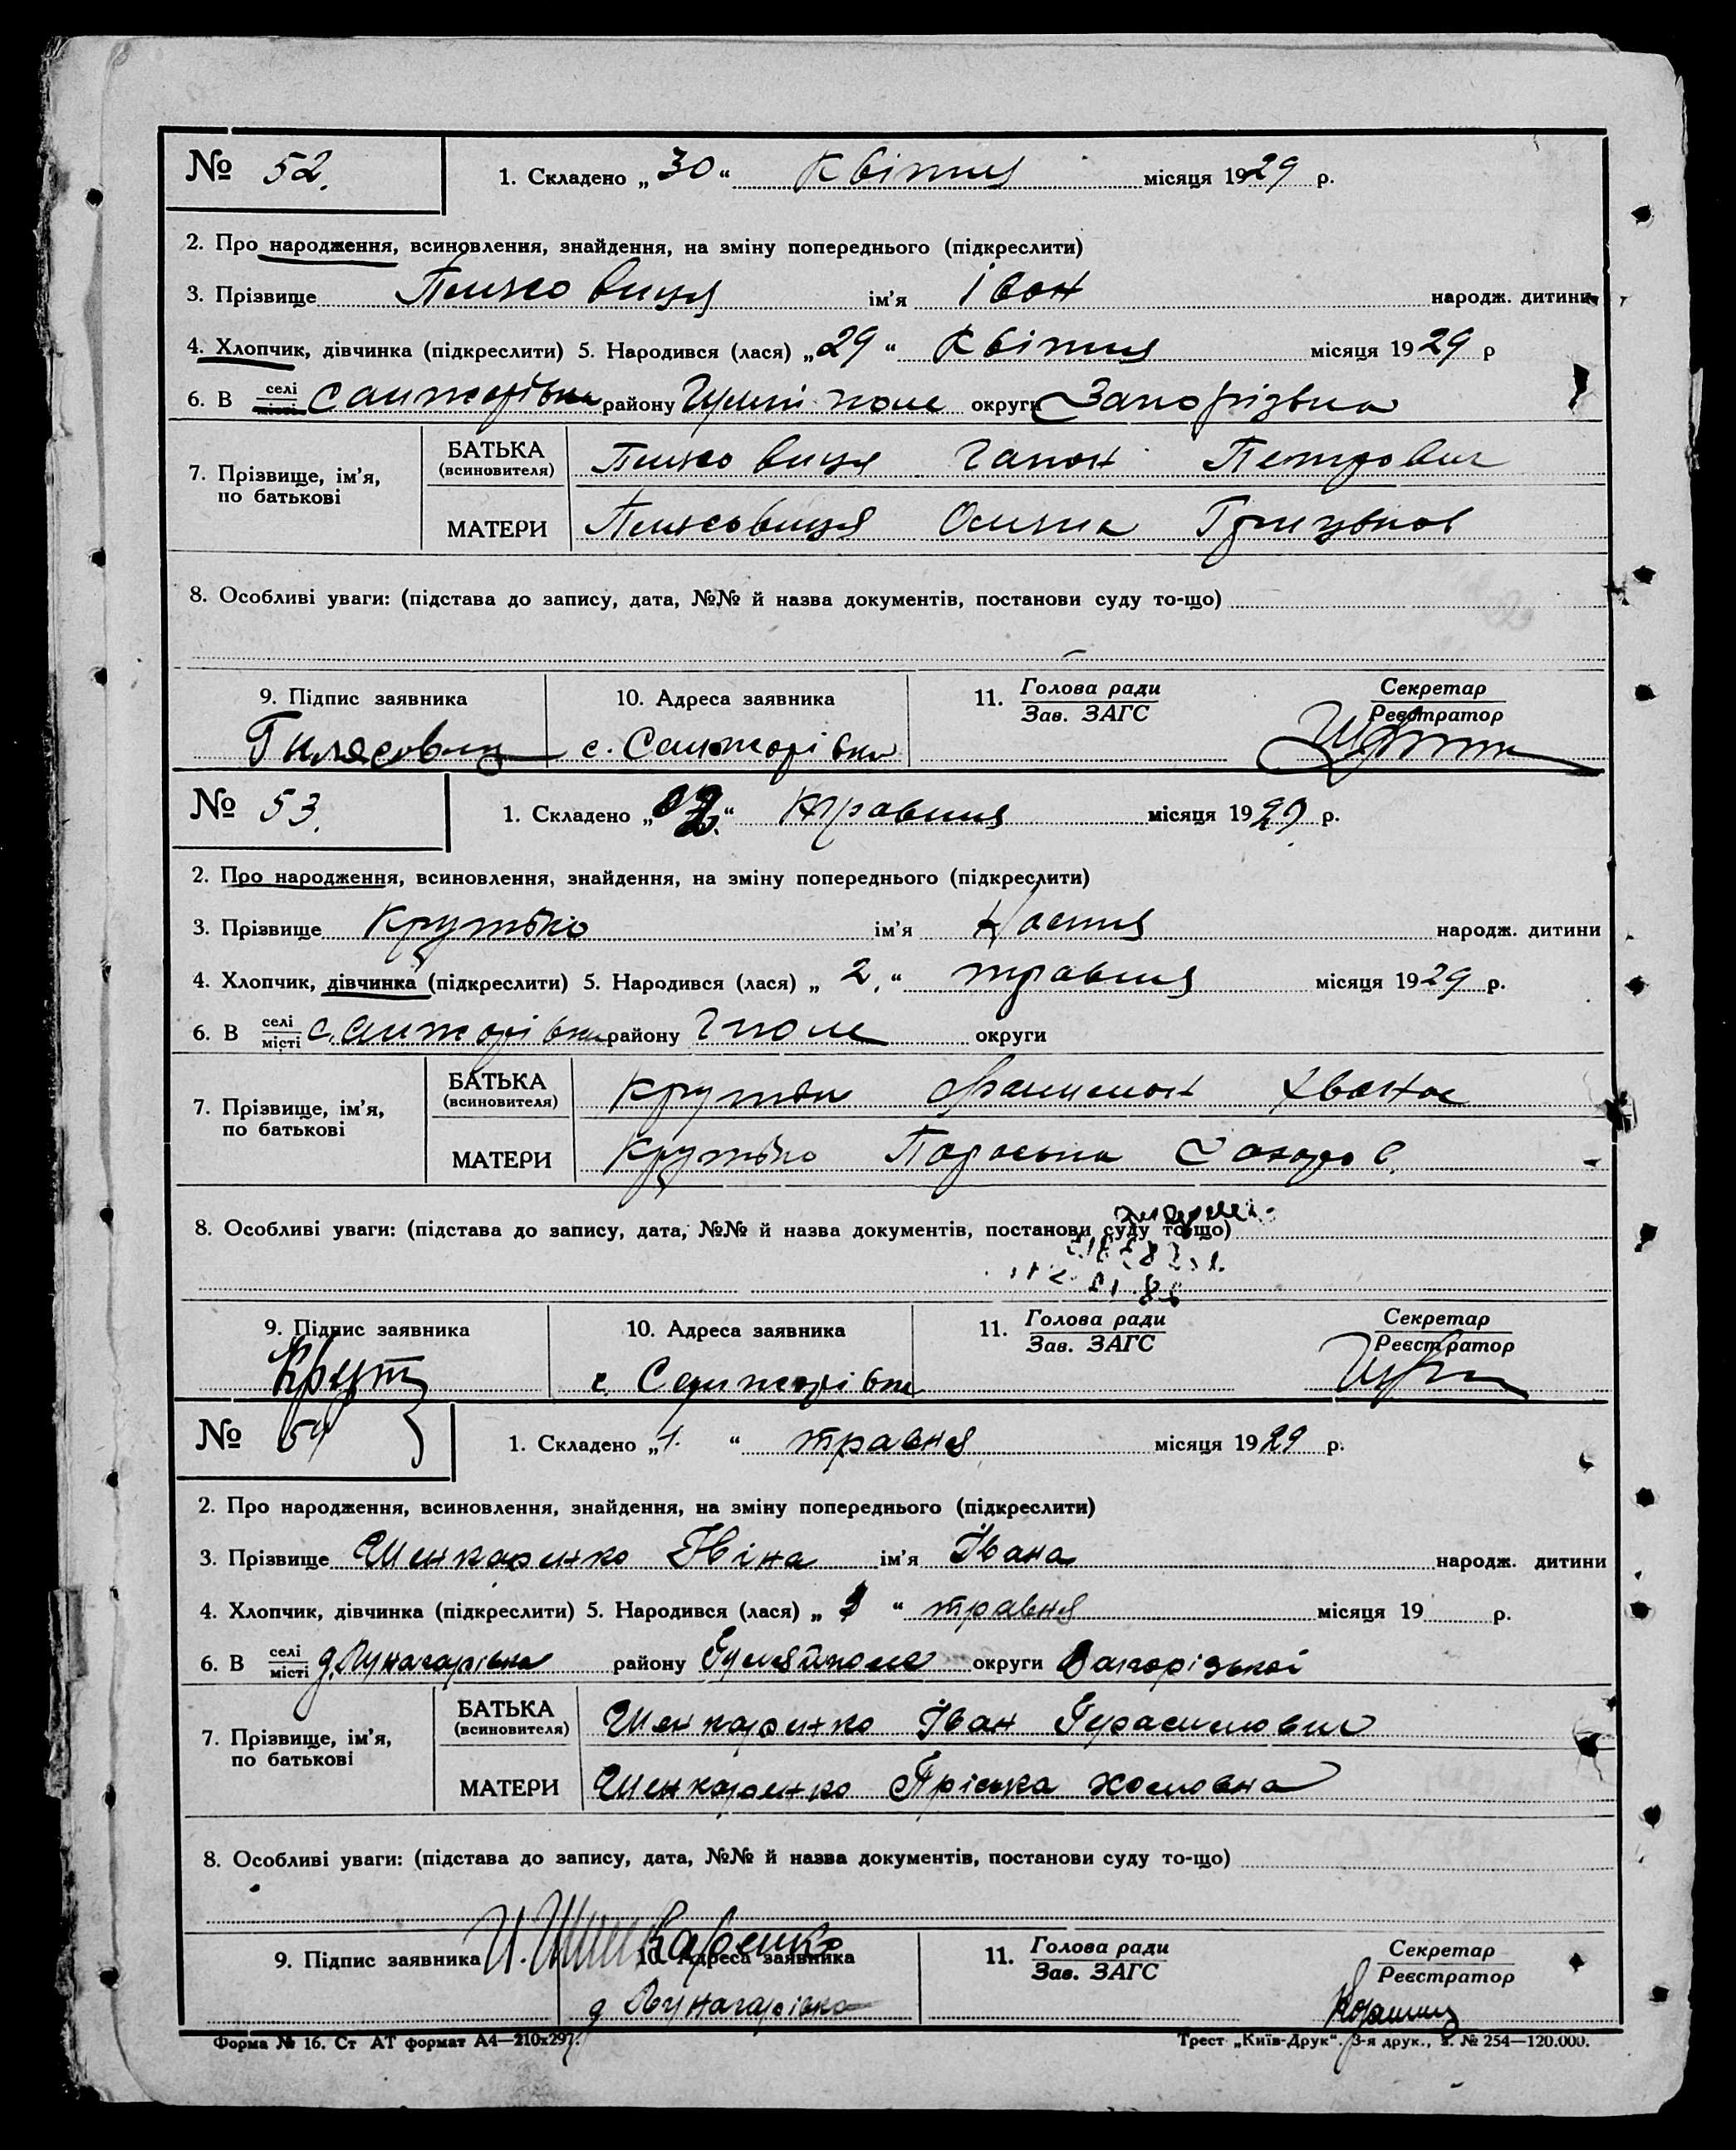 № 52.
1. Складено „30“ Квітня місяця 1929 р.
2. Про народження, всиновлення, знайдення, на зміну попереднього (підкреслити)
3. Прізвище ім’я Іван народж. дитини
4. Хлопчик, дівчинка (підкреслити) 5. Народився (лася) „29“ Квітня місяця 1929 р
6. В селі місті Санжарівка району Гуляй поле округи Запорізька
7. Прізвище, ім’я, по батькові
БАТЬКА (всиновителя) Гапон Петрович
МАТЕРИ
8. Особливі уваги: (підстава до запису, дата, №№ й назва документів, постанови суду то-що)
9. Підпис заявника 10. Адреса заявника 11. Голова ради Зав. ЗАГС Секретар Реєстратор
с. Санжарівка
№ 53.
1. Складено „02“ травня місяця 1929 р.
2. Про народження, всиновлення, знайдення, на зміну попереднього (підкреслити)
3. Прізвище Крутько ім’я Настя народж. дитини
4. Хлопчик, дівчинка (підкреслити) 5. Народився (лася) „2.“ травня місяця 1929 р.
6. В селі місті Санжарівка району Гполе округи
7. Прізвище, ім’я, по батькові
БАТЬКА (всиновителя) Крутько
МАТЕРИ Крутько Параська Захаров.
8. Особливі уваги: (підстава до запису, дата, №№ й назва документів, постанови суду то-що)
9. Підпис заявника 10. Адреса заявника 11. Голова ради Зав. ЗАГС Секретар Реєстратор
Крут с. Санжарівка
№ 54
1. Складено „1.“ травня місяця 1929 р.
2. Про народження, всиновлення, знайдення, на зміну попереднього (підкреслити)
3. Прізвище Шенкаренко Ніна ім’я Івана народж. дитини
4. Хлопчик, дівчинка (підкреслити) 5. Народився (лася) „ “ травня місяця 19 р.
6. В селі місті д. Луначарівка району Гуляйполе округи Запорізькоі
7. Прізвище, ім’я, по батькові
БАТЬКА (всиновителя) Шенкаренко Іван Герасимович
МАТЕРИ Шенкаренко Пріська хомовна
8. Особливі уваги: (підстава до запису, дата, №№ й назва документів, постанови суду то-що)
9. Підпис заявника 10. Адреса заявника 11. Голова ради Зав. ЗАГС Секретар Реєстратор
И. Шинкаренко д Луначарівка
Форма № 16. Ст АТ формат А4—210х297. Трест „Київ-Друк“. 3-я друк., з. № 254—120.000.